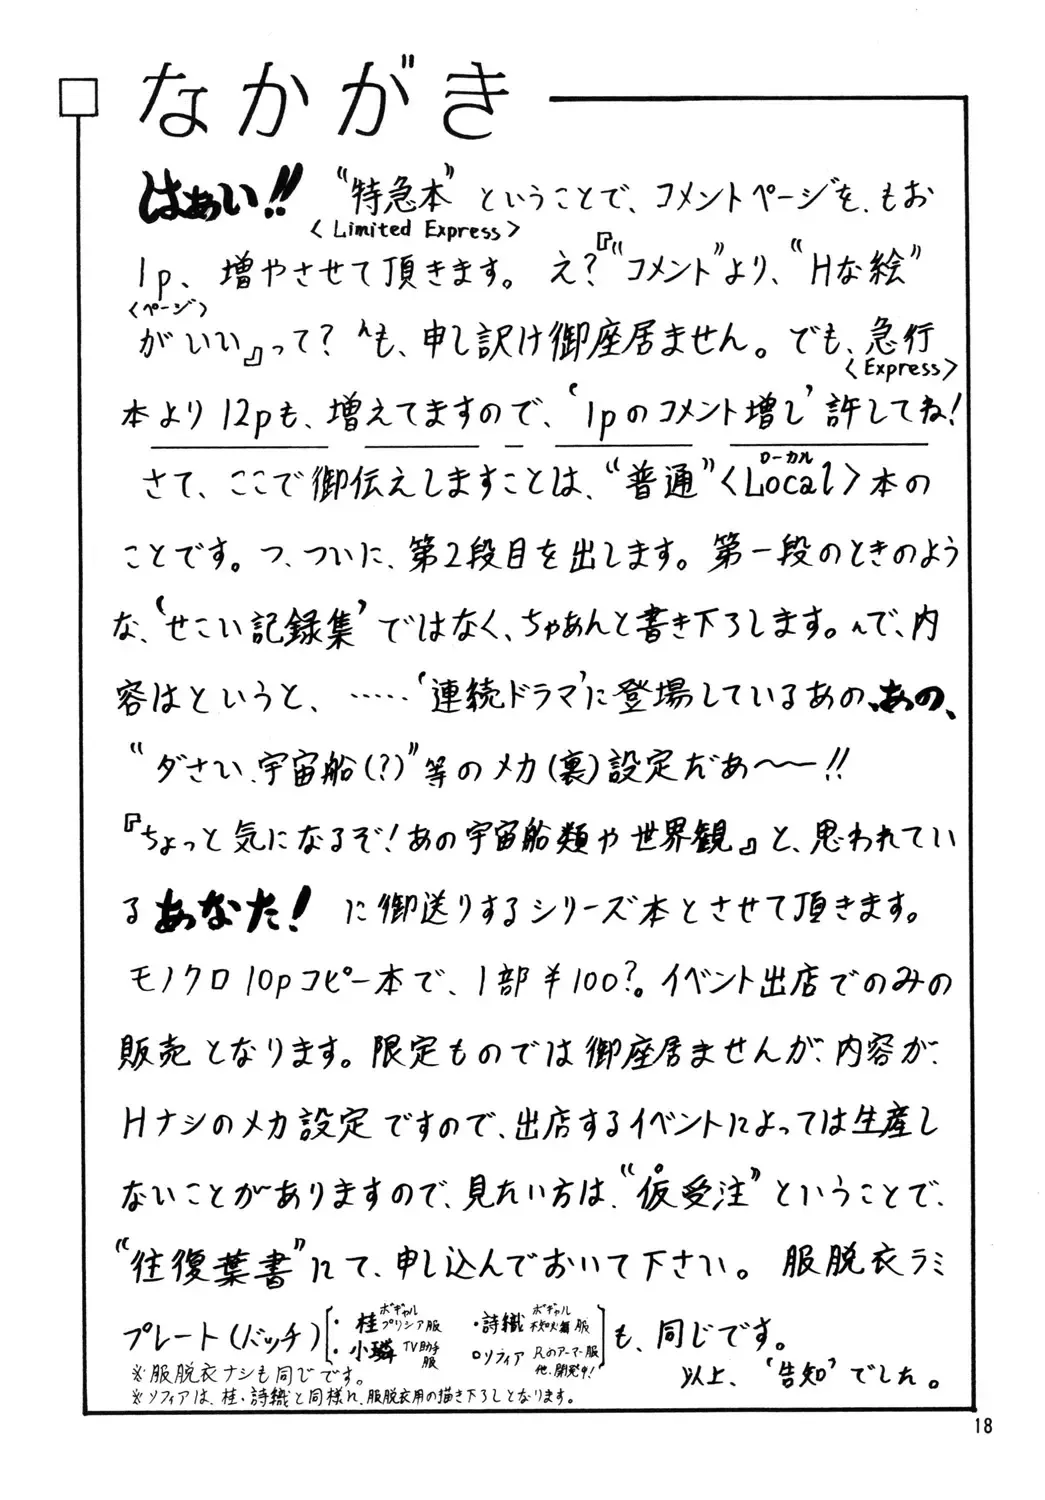 なかがき
はぁい!! “特急本”ということで、コメントページを、もお
〈Limited Express〉
1p、増やさせて頂きます。え?『“コメント”より、“Hな絵”
〈ページ〉
がいい』って? んも、申し訳け御座居ません。でも、急行
〈Express〉
本より12pも、増えてますので、‘1pのコメント増し’許してね!
さて、ここで御伝えしますことは、“普通”〈Local〉本の
ローカル
ことです。つ、ついに、第2段目を出します。第一段のときのよう
な、‘せこい記録集’ではなく、ちゃあんと書き下ろします。んで、内
容はというと、……‘連続ドラマ’に登場しているあの、あの、
“ダさい、宇宙船(?)”等のメカ(裏)設定だあ〜〜!!
『ちょっと気になるぞ!あの宇宙船類や世界観』と、思われてい
るあなた! に御送りするシリーズ本とさせて頂きます。
モノクロ10pコピー本で、1部¥100?。イベント出店でのみの
販売となります。限定ものでは御座居ませんが、内容が、
Hナシのメカ設定ですので、出店するイベントによっては生産し
ないことがありますので、見たい方は、“仮受注”ということで、
“往復葉書”にて、申し込んでおいて下さい。服脱衣ラミ
プレート(バッチ)
・桂 ボギャル プリシア服
・詩織 ボギャル 服
・小璘 TV助手服
○ソフィア Rのアーマー服 他、開発中!
も、同じです。
※服脱衣ナシも同じです。
※ソフィアは、桂・詩織と同様に、服脱衣用の描き下ろしとなります。
以上、‘告知’でした。
18